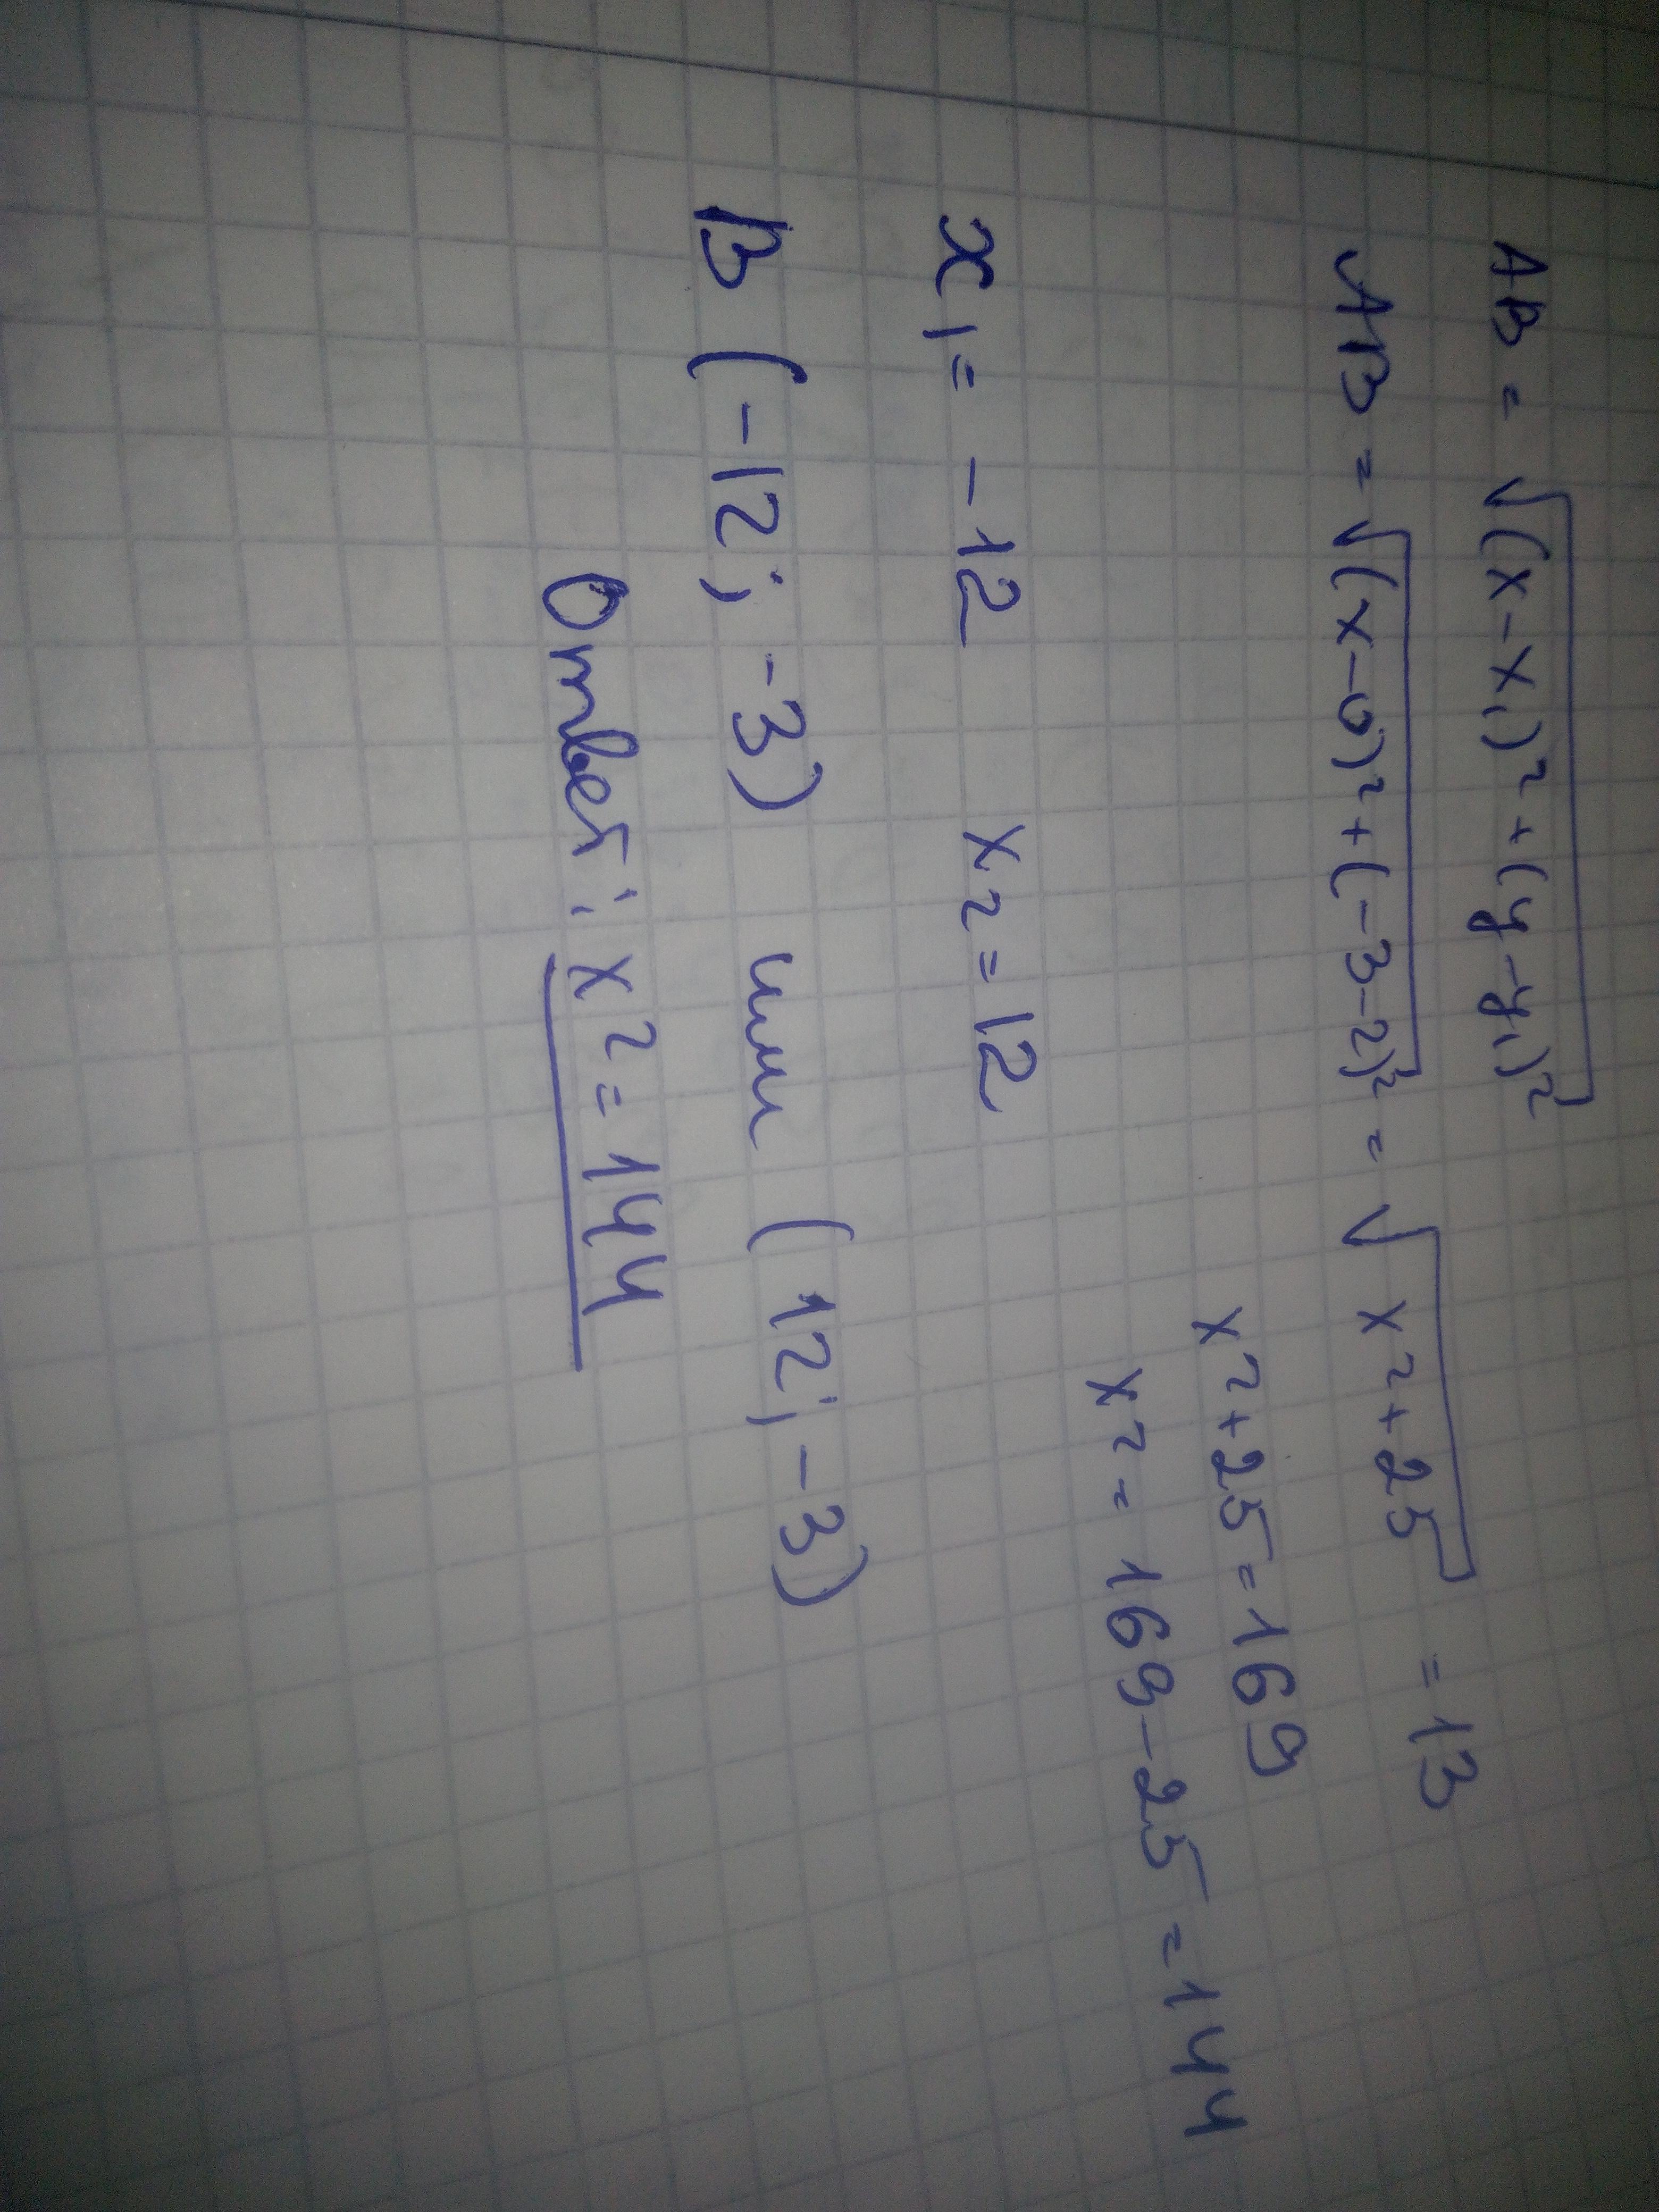 AB = √(x-x₁)²+(y-y₁)²
AB = √(x-0)²+(-3-2)² = √x²+25 = 13
x²+25=169
x²= 169-25=144
x₁= -12 x₂=12
B (-12; -3) или (12; -3)
Ответ: x²=144